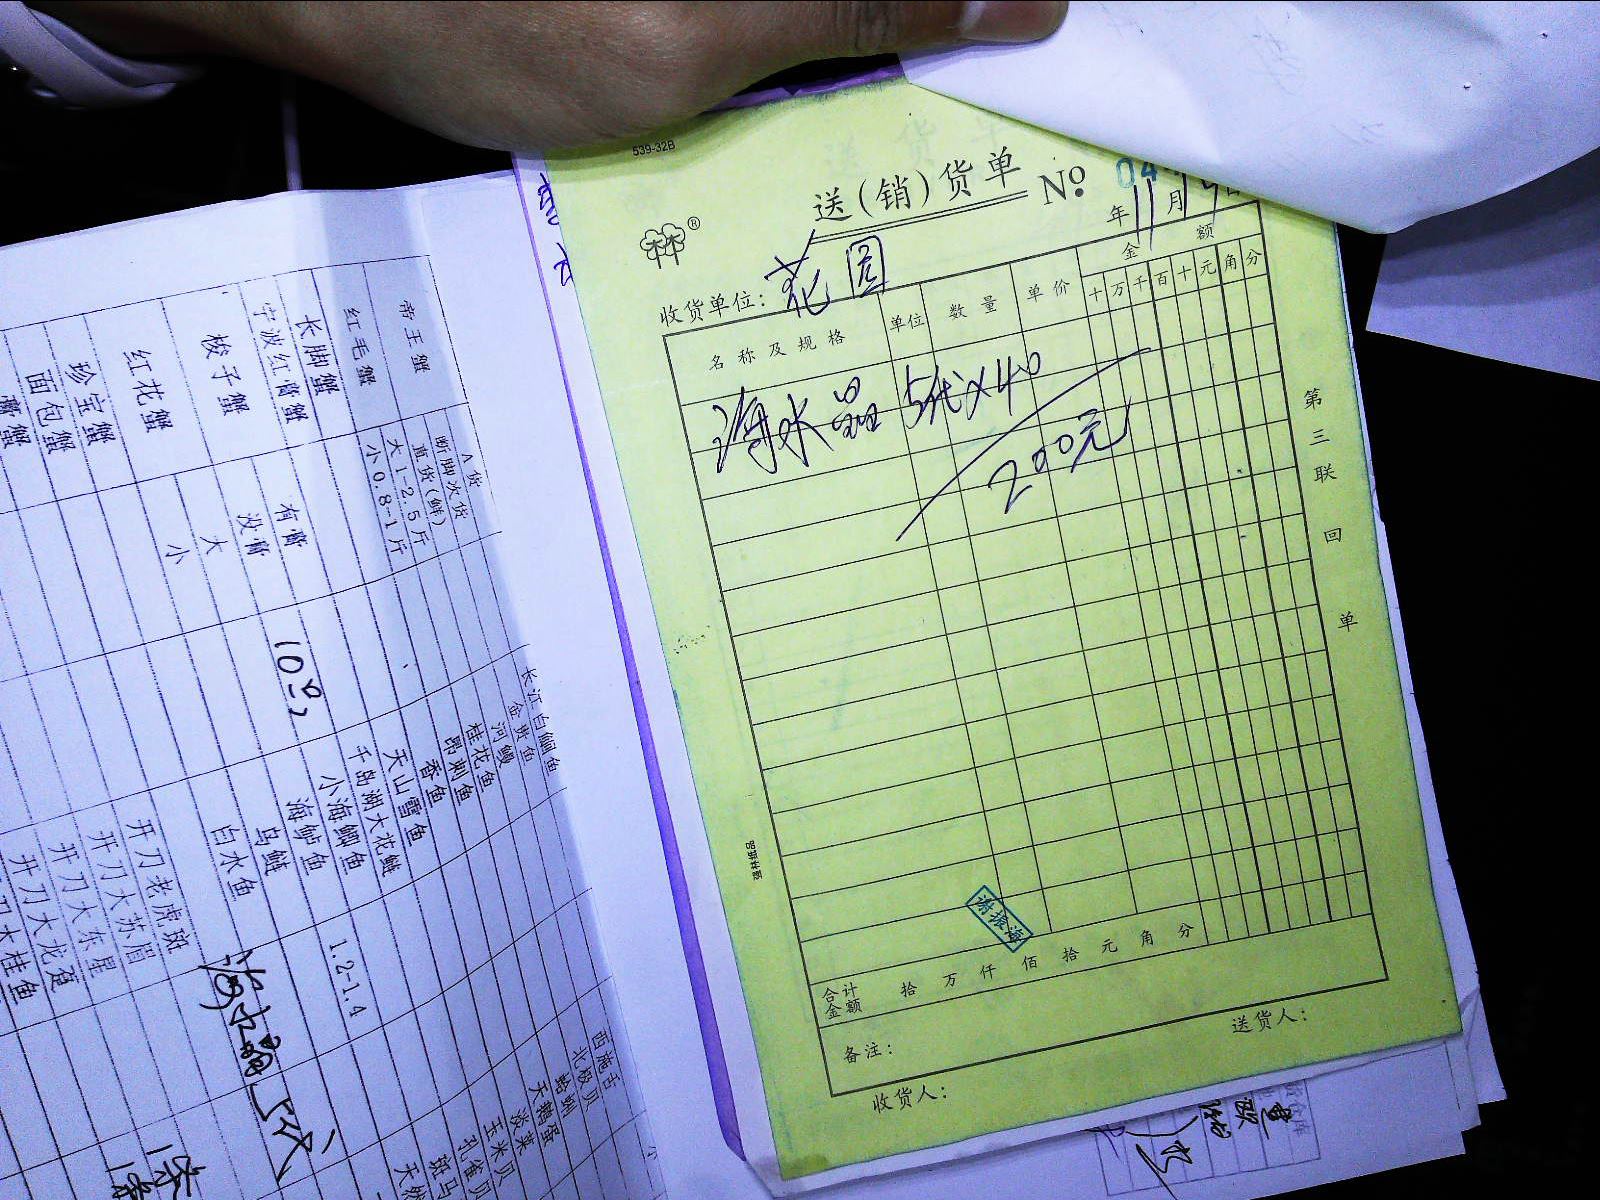 539-32B
送(销)货单 № 04
年 11 月
收货单位: 花园
名称及规格 单位 数量 单价 金额
十 万 千 百 十 元 角 分
海水晶 5代×40
200元
第三联 回单
强林纸品
谢振海
合计金额 拾 万 仟 佰 拾 元 角 分
备注:
送货人:
收货人:
帝王蟹
红毛蟹
长脚蟹
宁波红膏蟹
梭子蟹
红花蟹
珍宝蟹
面包蟹
A货
断脚次货
直货(鲜)
大1-2.5斤
小0.8-1斤
有膏
没膏
大
小
10只
长江白鮰鱼
金贵鱼
河鳗
桂花鱼
昂刺鱼
香鱼
天山雪鱼
千岛湖大花鲢
小海鲫鱼
海鲈鱼
乌鲢
白水鱼
1.2-1.4
开刀老虎斑
开刀大苏眉
开刀大东星
开刀大龙趸
海水晶 5代
西施舌
北极贝
蛤蜊
天鹅蛋
淡菜贝
玉米贝
孔雀贝
斑马
天然
小